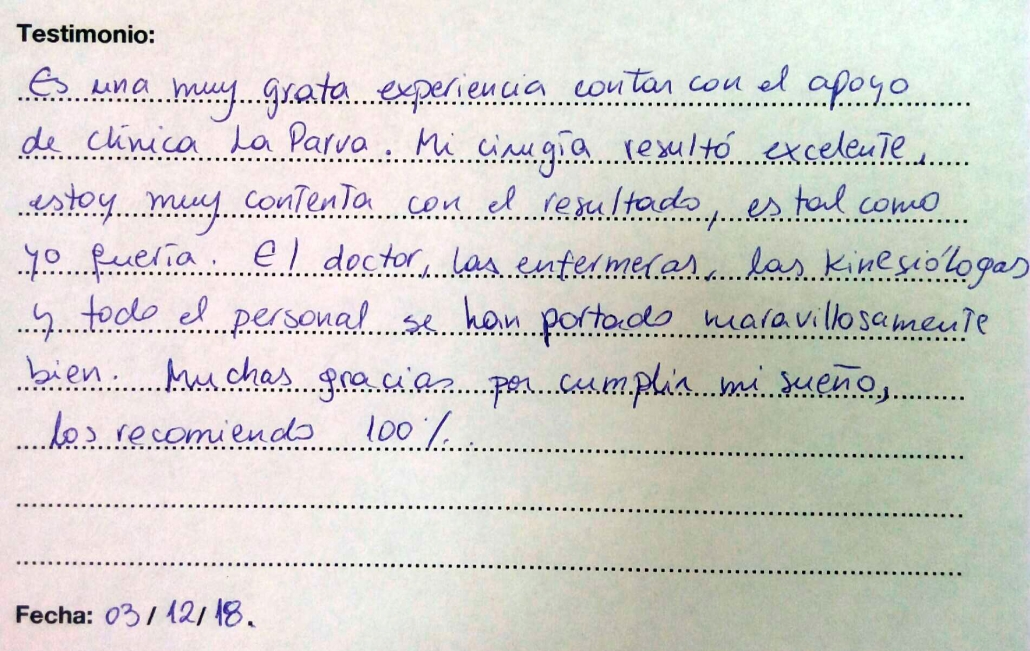 Testimonio:
Es una muy grata experiencia contar con el apoyo
de clínica La Parva. Mi cirugía resultó excelente,
estoy muy contenta con el resultado, es tal como
yo quería. El doctor, las enfermeras, las kinesiólogas
y todo el personal se han portado maravillosamente
bien. Muchas gracias por cumplir mi sueño,
los recomiendo 100%.
Fecha: 03/12/18.